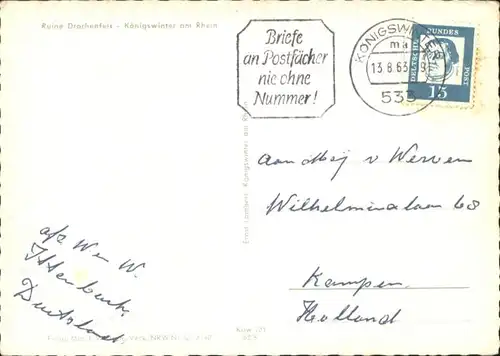 Ruine Drachenfels - Königswinter am Rhein
Briefe
an Postfächer
nie ohne
Nummer!
KÖNIGSWINTER
ma
13.8.63
533
DEUTSCHE BUNDESPOST
15
Aan v Werven
Wilhelminalaan 68
Kampen
Holland
afz W
Ittenbach
Duitsland
Königswinter am Rhein